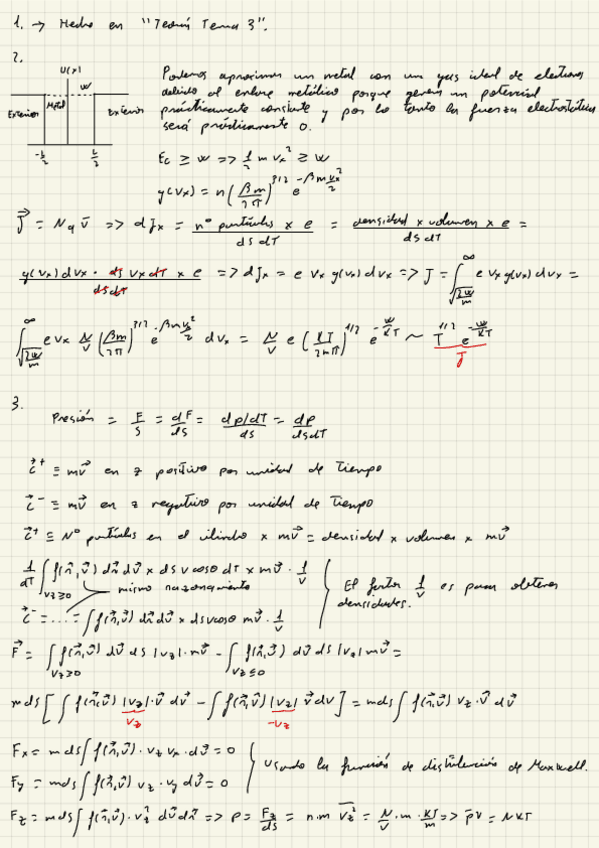 1. → Hecho en "Teoría Tema 3".
2.
U(x)
W
Exterior Metal Exterior
-L/2 L/2
Podemos aproximar un metal con un gas ideal de electrones
debido al enlace metálico porque genera un potencial
prácticamente constante y por lo tanto la fuerza electrostática
será prácticamente 0.
Ec ≥ W => 1/2 m vx² ≥ W
g(vx) = n (βm/2π)^(1/2) e^(-βm vx²/2)
J⃗ = N q v̄ => dJx = nº partículas x e / ds dT = densidad x volumen x e / ds dT =
g(vx) dvx · ds vx dT x e / ds dT => dJx = e vx g(vx) dvx => J = ∫_{√(2W/m)}^∞ e vx g(vx) dvx =
∫_{√(2W/m)}^∞ e vx N/V (βm/2π)^(1/2) e^(-βm vx²/2) dvx = N/V e (KT/2mπ)^(1/2) e^(-W/KT) ~ T^(1/2) e^(-W/KT)
J
3.
Presión = F/S = dF/ds = dp/dT / ds = dp / ds dT
c⃗⁺ ≡ mv⃗ en z positivo por unidad de tiempo
c⃗⁻ ≡ mv⃗ en z negativo por unidad de tiempo
c⃗⁺ ≡ Nº partículas en el cilindro x mv⃗ = densidad x volumen x mv⃗
1/dT ∫_{vz≥0} f(r⃗,v⃗) dr⃗ dv⃗ x ds v cosθ dT x mv⃗ · 1/V
mismo razonamiento
El factor 1/V es para obtener
densidades.
c⃗⁻ = ... = ∫ f(r⃗,v⃗) dr⃗ dv⃗ x ds v cosθ mv⃗ · 1/V
F⃗ = ∫_{vz≥0} f(r⃗,v⃗) dv⃗ ds |vz| · mv⃗ - ∫_{vz≤0} f(r⃗,v⃗) dv⃗ ds |vz| mv⃗ =
m ds [ ∫ f(r⃗,v⃗) |vz| · v⃗ dv⃗ - ∫ f(r⃗,v⃗) |vz| v⃗ dv ] = m ds ∫ f(r⃗,v⃗) vz · v⃗ dv⃗
vz -vz
Fx = m ds ∫ f(r⃗,v⃗) · vz vx · dv⃗ = 0
Usando la función de distribución de Maxwell.
Fy = m ds ∫ f(r⃗,v⃗) vz · vy dv⃗ = 0
Fz = m ds ∫ f(r⃗,v⃗) · vz² dv⃗ dr⃗ => p = Fz/ds = n·m v̄z² = N/V · m · KT/m => p̄V = NKT